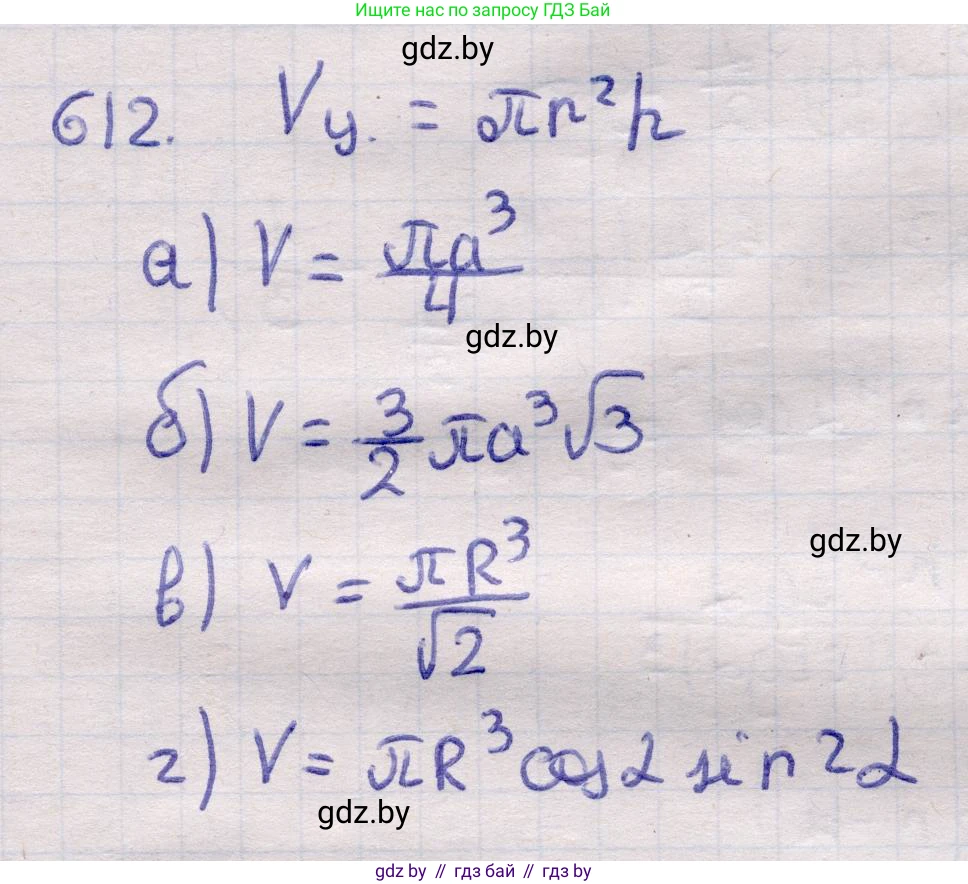 Ищите нас по запросу ГДЗ Бай
gdz.by
612. Vц. = πr²h
а) V = πa³/4
gdz.by
б) V = 3/2 πa³√3
gdz.by
в) V = πR³/√2
г) V = πR³ cos α sin² α
gdz.by
gdz.by // гдз бай // гдз by